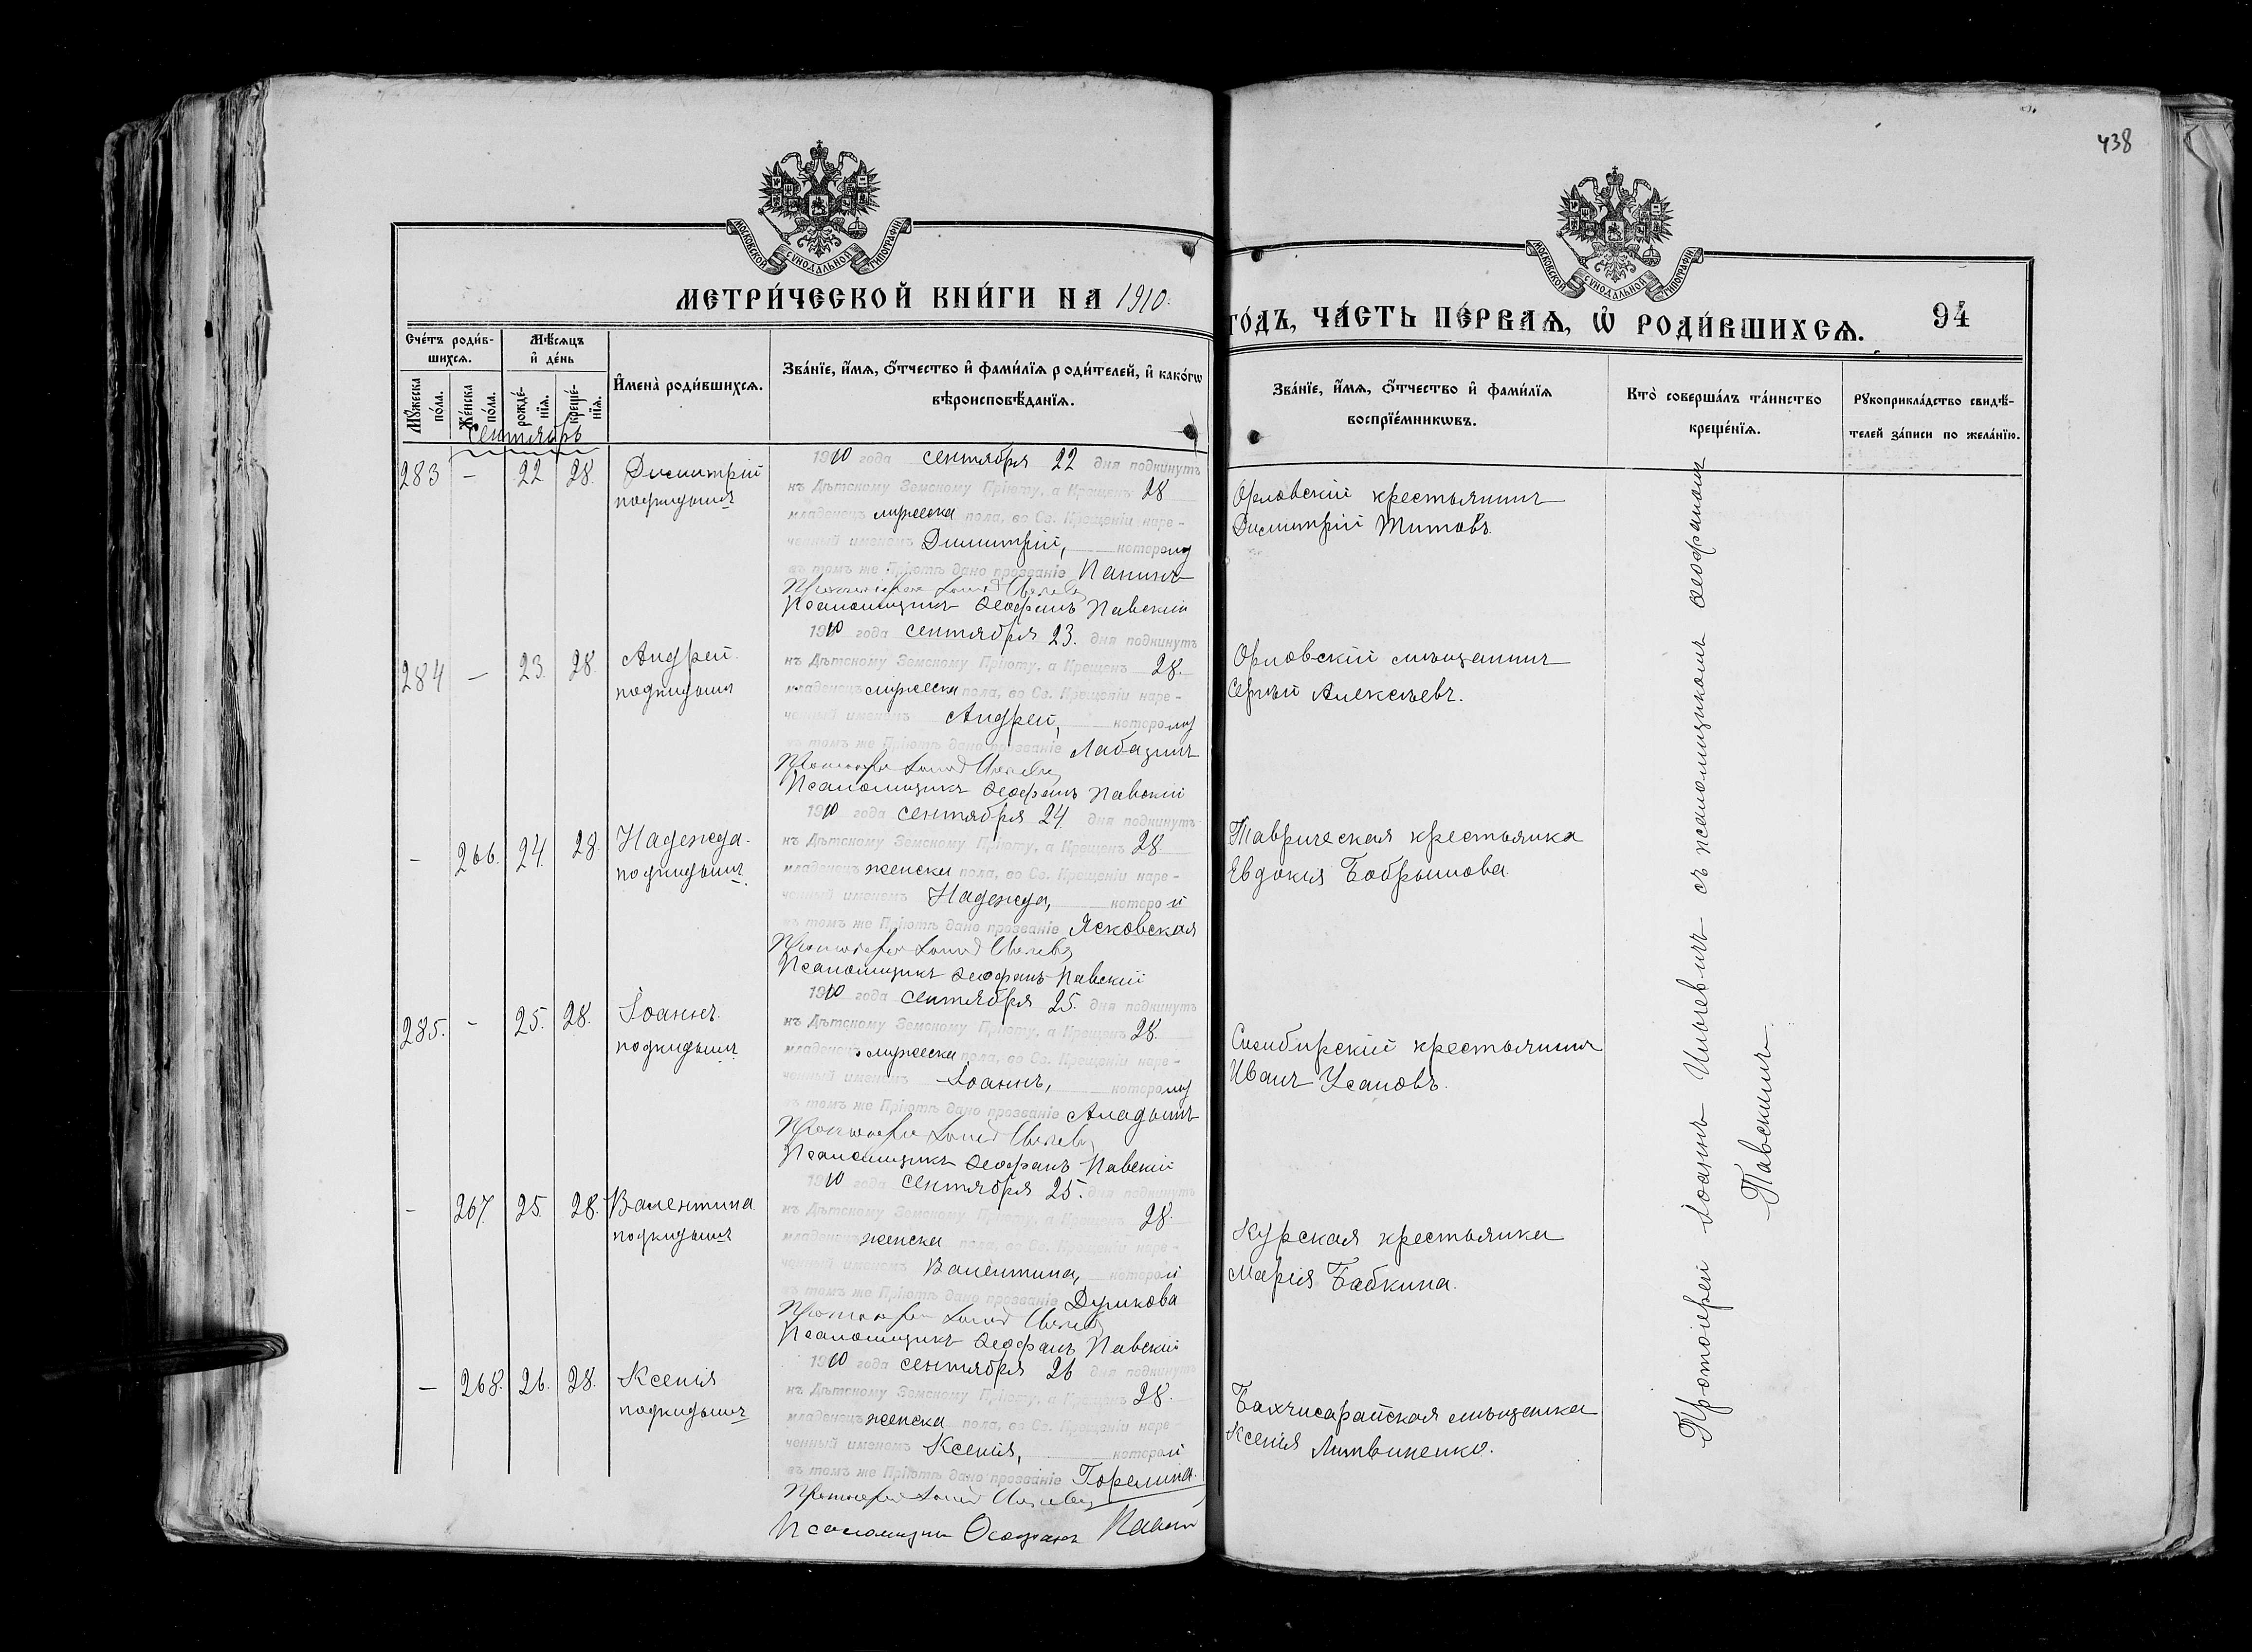 438
МОСКОВСКОЙ СУНОДАЛЬНОЙ ТИПОГРАФІИ
МОСКОВСКОЙ СУНОДАЛЬНОЙ ТИПОГРАФІИ
МЕТРИ́ЧЕСКОЙ КНИ́ГИ НА 1910.
ГО́ДЪ, ЧА́СТЬ ПЕ́РВАѦ, Ѽ РОДИ́ВШИХСѦ.
94
Сче́тъ роди́в-
шихсѧ.
Мѣ́сѧцъ
и҆ де́нь
Мꙋ́жеска
по́ла.
Же́нска
по́ла.
рожде́-
нїѧ.
креще́-
нїѧ.
И҆мена̀ роди́вшихсѧ.
Зва́нїе, и҆́мѧ, ѻ҆́тчество и҆ фами́лїѧ роди́телей, и҆ како́гѡ
вѣроисповѣ́данїѧ.
Зва́нїе, и҆́мѧ, ѻ҆́тчество и҆ фами́лїѧ
воспрїе́мникѡвъ.
Кто̀ соверша́лъ та́инство
креще́нїѧ.
Рꙋкоприкла́дство свидѣ́-
телей за́писи по жела́нїю.
сентябрь
283 - 22 28. Димитрій
подкидышъ
1910 года сентября 22 дня подкинутъ
къ Дѣтскому Земскому Пріюту, а Крещенъ 28
младенецъ мужеска пола, во Св. Крещеніи наре-
ченный именемъ Димитрій, которому
въ томъ же Пріютѣ дано прозваніе Панинъ
Протоіерей
Псаломщикъ Ѳеофанъ Павскій
Орловскій крестьянинъ
Димитрій Титовъ.
284 - 23. 28 Андрей.
подкидышъ
1910 года сентября 23. дня подкинутъ
къ Дѣтскому Земскому Пріюту, а Крещенъ 28.
младенецъ мужеска пола, во Св. Крещеніи наре-
ченный именемъ Андрей, которому
въ томъ же Пріютѣ дано прозваніе Лабазинъ
Протоіерей
Псаломщикъ Ѳеофанъ Павскій
Орловскій мѣщанинъ
Сергѣй Алексѣевъ.
- 266. 24. 28. Надежда.
подкидышъ.
1910 года сентября 24. дня подкинутъ
къ Дѣтскому Земскому Пріюту, а Крещенъ 28
младенецъ женска пола, во Св. Крещеніи наре-
ченный именемъ Надежда, которой
въ томъ же Пріютѣ дано прозваніе Ясковская
Протоіерей
Псаломщикъ Ѳеофанъ Павскій
Таврическая крестьянка
Евдокія Бобрышова.
285. - 25. 28. Іоаннъ.
подкидышъ
1910 года сентября 25. дня подкинутъ
къ Дѣтскому Земскому Пріюту, а Крещенъ 28.
младенецъ мужеска пола, во Св. Крещеніи наре-
ченный именемъ Іоаннъ, которому
въ томъ же Пріютѣ дано прозваніе Аладьинъ
Протоіерей
Псаломщикъ Ѳеофанъ Павскій
Симбирскій крестьянинъ
Иванъ Усановъ.
- 267. 25. 28. Валентина.
подкидышъ
1910 года сентября 25. дня подкинутъ
къ Дѣтскому Земскому Пріюту, а Крещенъ 28.
младенецъ женска пола, во Св. Крещеніи наре-
ченный именемъ Валентина, которой
въ томъ же Пріютѣ дано прозваніе
Протоіерей
Псаломщикъ Ѳеофанъ Павскій
Курская крестьянка
Марія Бабкина.
- 268. 26. 28. Ксенія
подкидышъ
1910 года сентября 26 дня подкинутъ
къ Дѣтскому Земскому Пріюту, а Крещенъ 28.
младенецъ женска пола, во Св. Крещеніи наре-
ченный именемъ Ксенія, которой
въ томъ же Пріютѣ дано прозваніе Горелина.
Протоіерей
Псаломщикъ Ѳеофанъ
Бахчисарайская мѣщанка
Ксенія Литвиненко.
Протоіерей Іоаннъ Ильевичъ съ псаломщикомъ Ѳеофаномъ
Павскимъ.